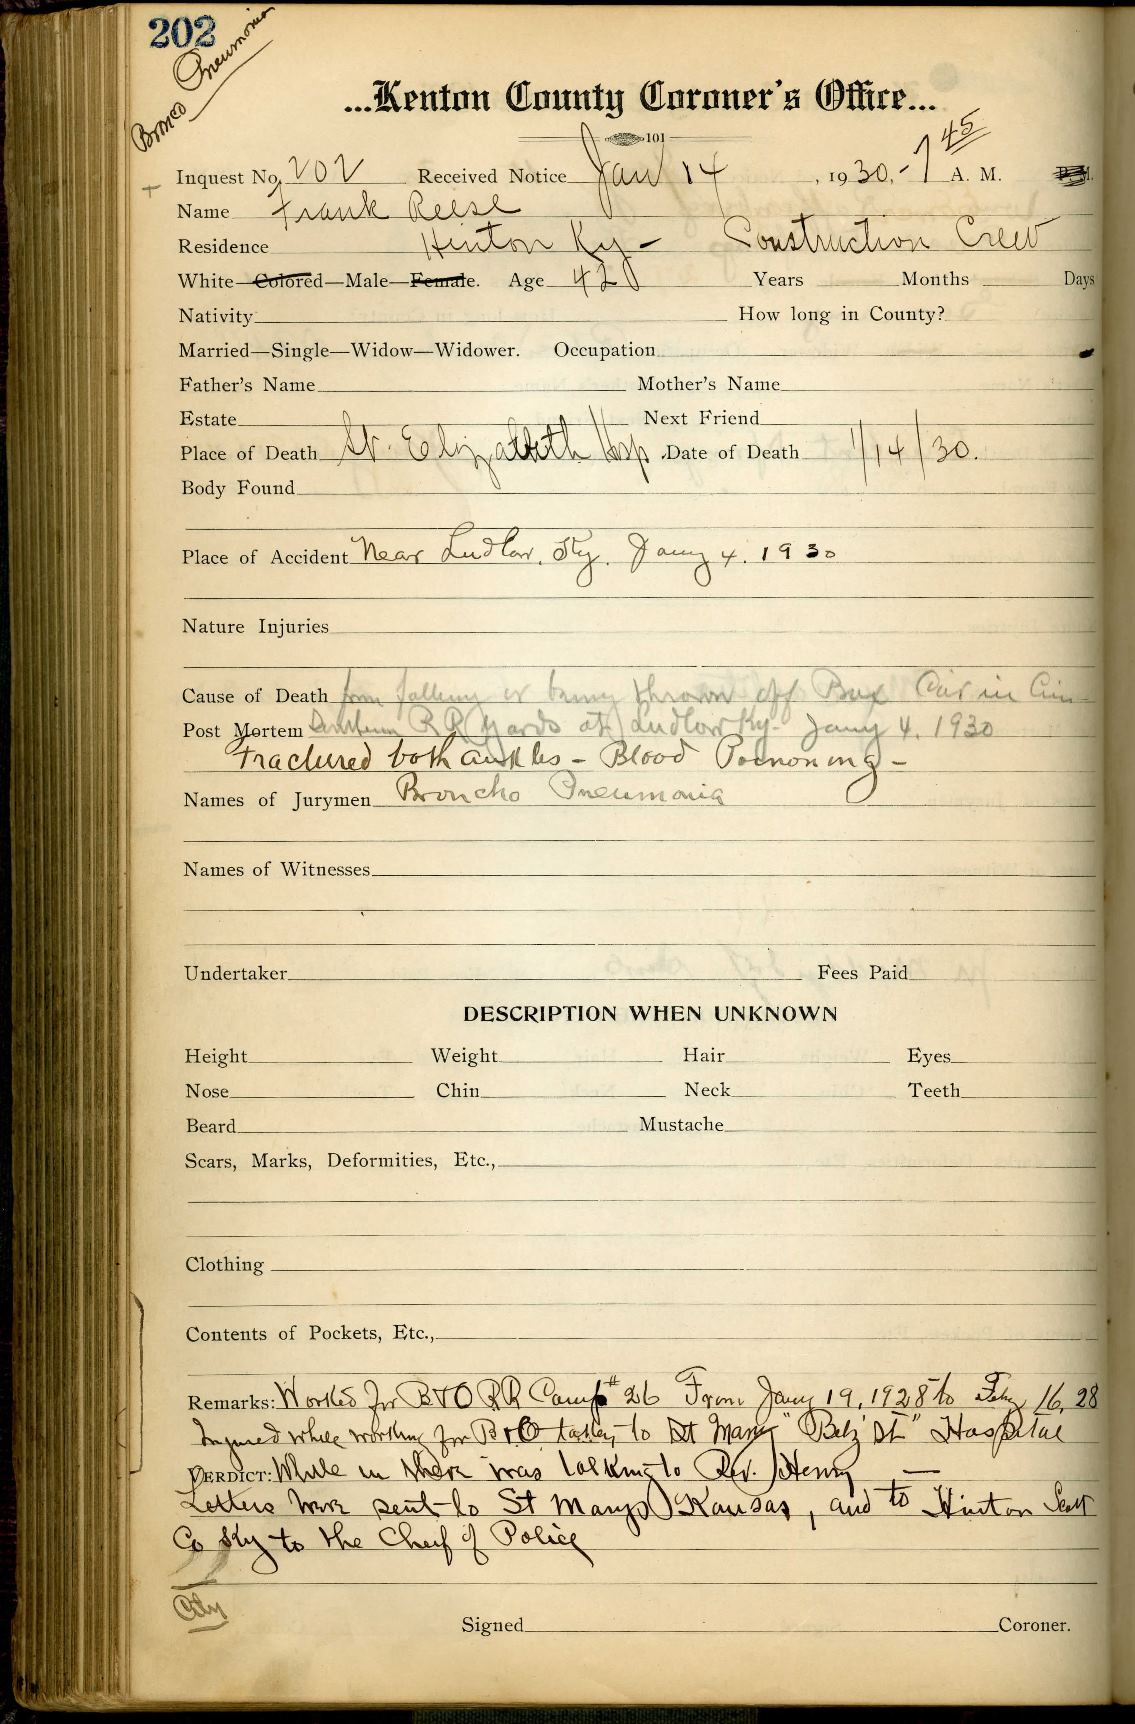 202
Bronco Pneumonia
...Kenton County Coroner's Office...
101
Inquest No. 202 Received Notice Jan 14, 1930,-7 45 A. M. P. M.
Name Frank Reese
Residence Hinton Ky - Construction Crew
White—Colored—Male—Female. Age 42 Years Months Days
Nativity How long in County?
Married—Single—Widow—Widower. Occupation
Father's Name Mother's Name
Estate Next Friend
Place of Death St. Elizzabeth Hosp. Date of Death 1/14/30.
Body Found
Place of Accident Near Ludlow, Ky. Jany 4. 1930
Nature Injuries
Cause of Death from falling or being thrown off Box Car in Cin-
Post Mortem Southern RR yards at Ludlow Ky- Jany 4, 1930
Fractured both ankles - Blood Poisoning -
Names of Jurymen Broncho Pneumonia
Names of Witnesses
Undertaker Fees Paid
DESCRIPTION WHEN UNKNOWN
Height Weight Hair Eyes
Nose Chin Neck Teeth
Beard Mustache
Scars, Marks, Deformities, Etc.,
Clothing
Contents of Pockets, Etc.,
Remarks: Worked for B&O RR Camp #26 From Jany 19, 1928 to Feby 16, 28
Injured while working for B&O taken to St Mary " St" Hospital
VERDICT: While in there was talking to Rev. Henry —
Letters were sent to St Marys Kansas, and to Hinton Scott
Co Ky to the Chief of Police
City
Signed Coroner.